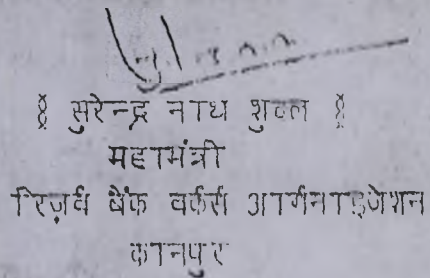 ( सुरेन्द्र नाथ शुक्ल )
महामंत्री
रिज़र्व बैंक वर्कर्स आर्गनाइजेशन
कानपुर